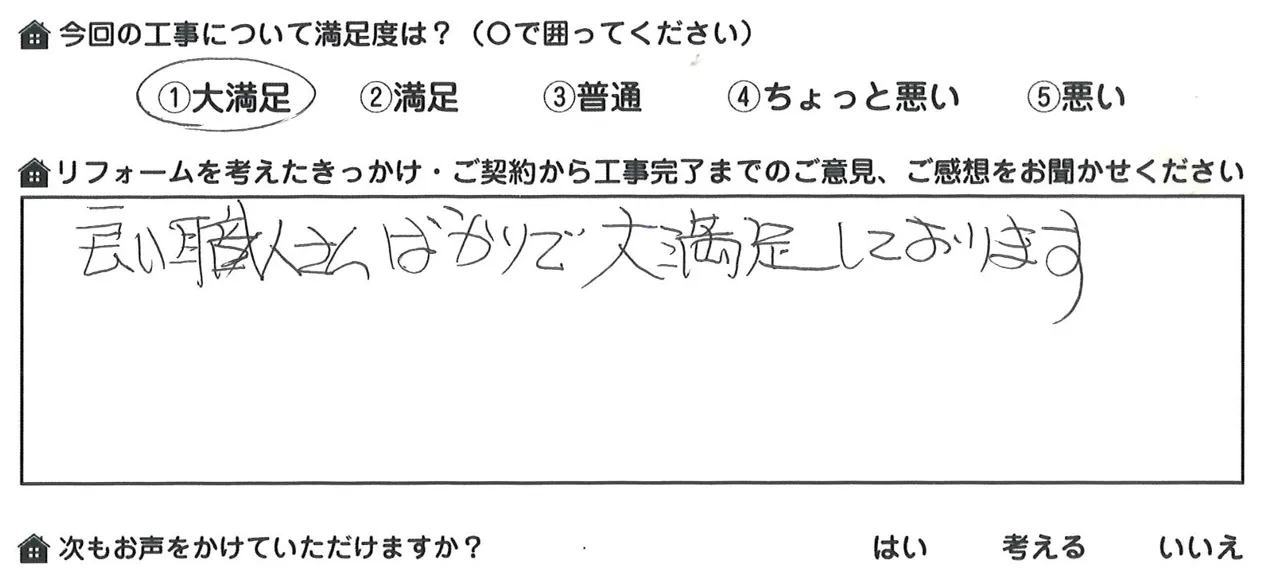 今回の工事について満足度は？（〇で囲ってください）
①大満足 ②満足 ③普通 ④ちょっと悪い ⑤悪い
リフォームを考えたきっかけ・ご契約から工事完了までのご意見、ご感想をお聞かせください
良い職人さんばかりで大満足しております
次もお声をかけていただけますか？ はい 考える いいえ